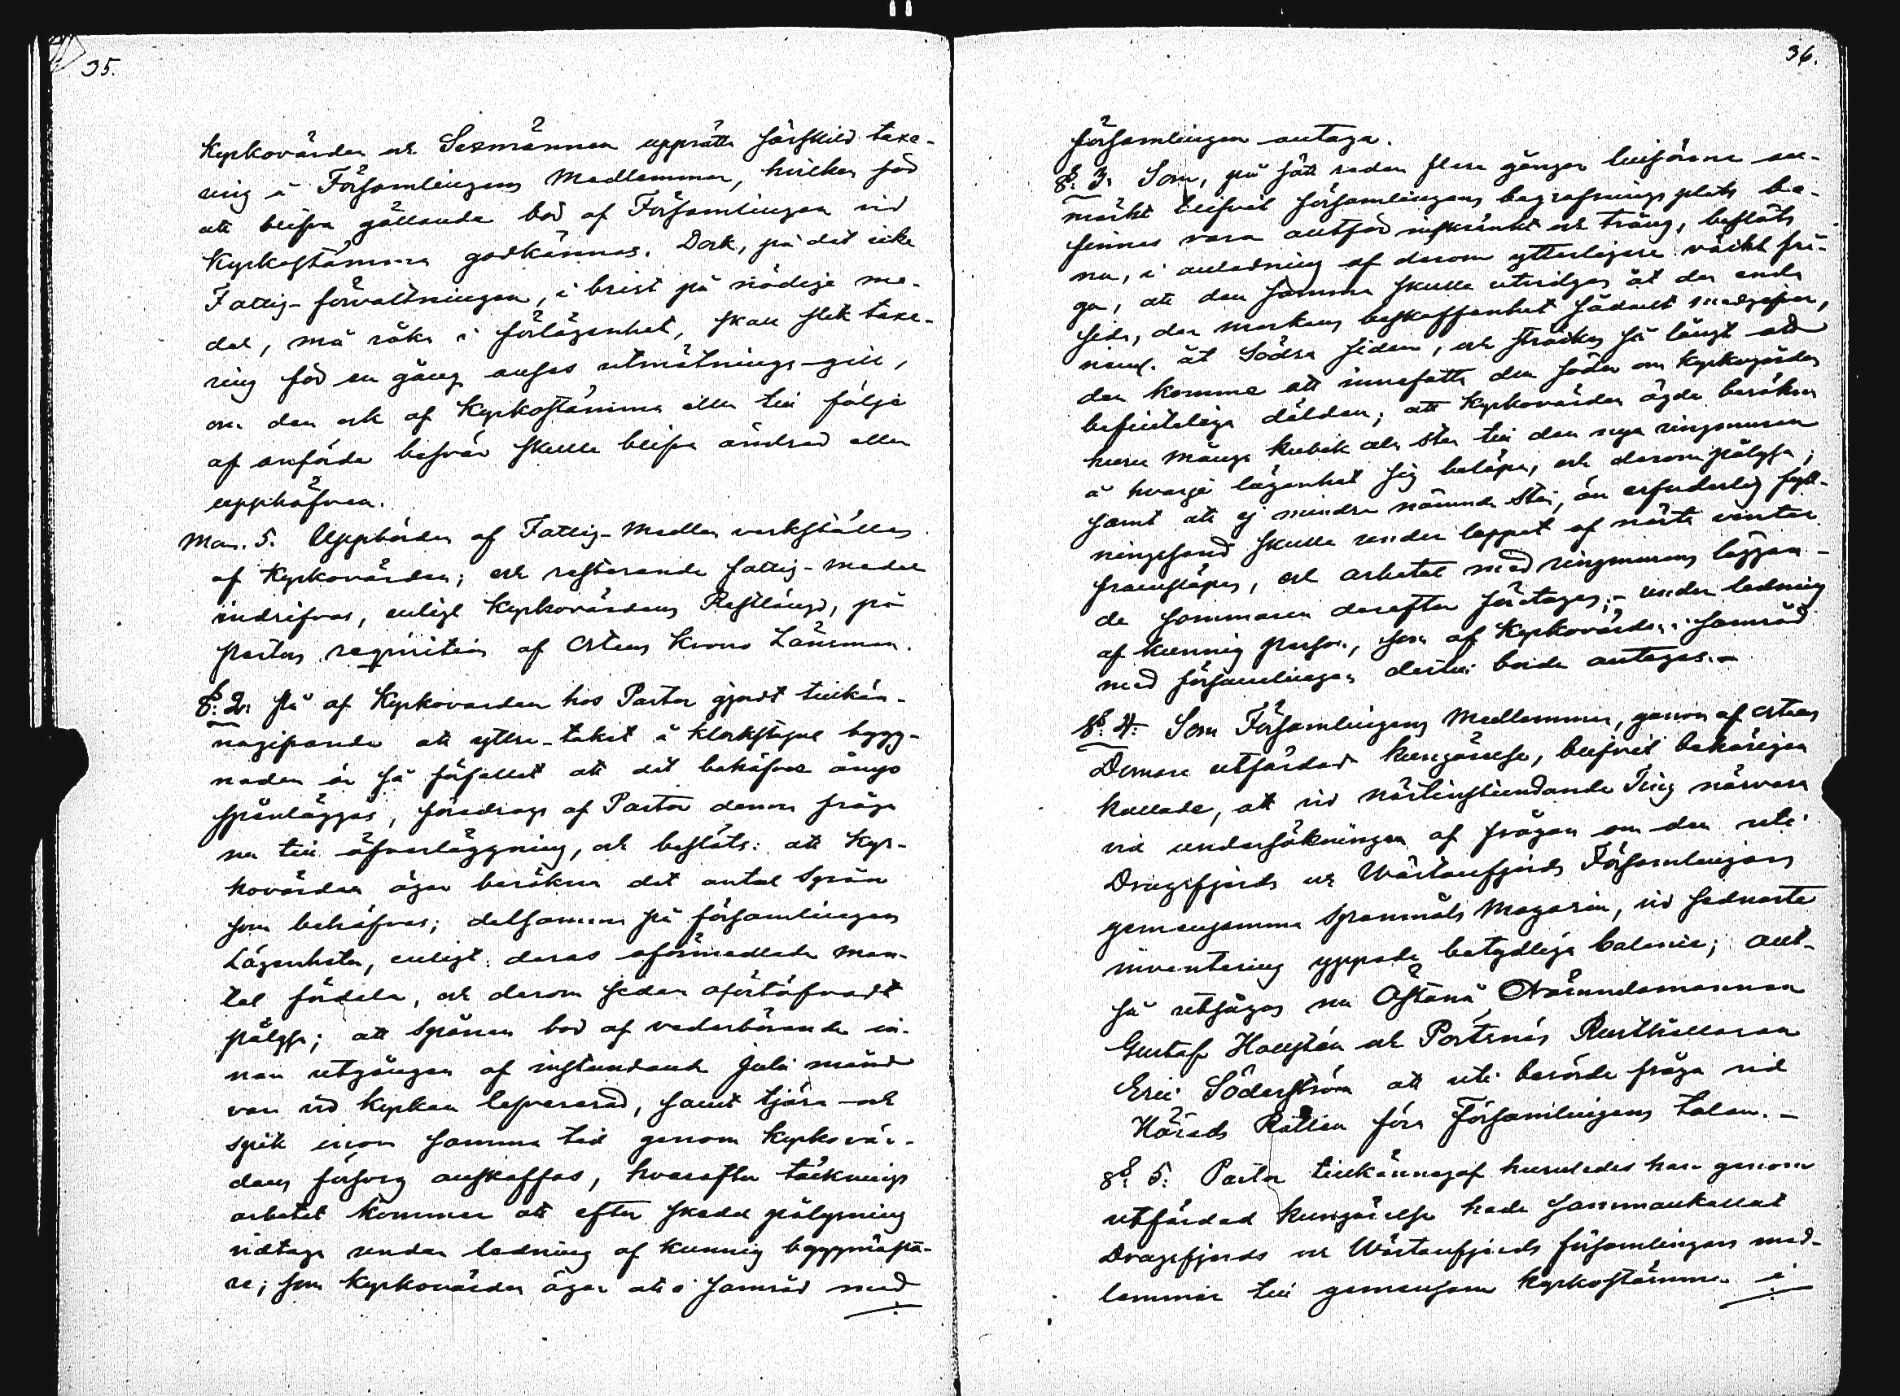 35.
Kyrkovärden och Sexmännen upprätta särskild taxe-
ring å Församlingens Medlemmar, hvilken för
att blifva gällande bör af Församlingen vid
Kyrkostämma godkännas. Dock, på det icke
Fattig-förvaltningen, i brist på nödige me-
del, må råka i förlägenhet, skall slik taxe-
ring för en gång anses utmätnings-gill,
om den ock af Kyrkostämma eller till följe
af anförda besvär skulle blifva ändrad eller
upphäfven.
Mom. 5. Uppbörden af Fattig-Medlen verkställes
af Kyrkovärden; och resterande fattig-medel
indrifvas, enligt Kyrkovärdens Restlängd, på
Pastors requisition af Ortens Krono Länsman.
§. 2. På af Kyrkovärden hos Pastor gjordt tillkän-
nagifvande att yttre-taket å Klockstapel bygg-
naden är så förfallet att det behöfver ånyo
spånläggas, föredrogs af Pastor denna fråga
nu till öfverläggning, och beslöts: att Kyr-
kovärden äger beräkna det antal Spån
som behöfves; detsamma på församlingens
Lägenheter, enligt deras oförmedlade man-
tal fördela, och derom sedan oförtöfvadt
pålysa; att Spånen bör af vederbörande in-
nan utgången af instundande Juli månad
vara vid Kyrkan lefvererad, samt tjära och
spik inom samma tid genom Kyrkovär-
dens försorg anskaffas, hvarefter täcknings
arbetet kommer att efter skedd pålysning
vidtaga under ledning af kunnig byggmästa-
re; som Kyrkovärden äger att i samråd med
36.
församlingen antaga.
§. 3. Som, på sätt redan flere gånger tillförene an-
märkt blifvit församlingens begrafningsplats be-
finnes vara alltför inskränkt och trång, beslöts
nu, i anledning af derom ytterligare väckt frå-
ga, att den samma skulle utvidgas åt den enda
sida, der markens beskaffenhet sådant medgifver,
neml. åt Södra sidan, och sträckas så långt att
den komme att innefatta den söder om Kyrkogården
befinteliga dälden; att Kyrkovärden ägde beräkna
huru många kubik aln sten till den nya ringmuren
å hvarje lägenhet sig belöpa, och derom pålysa;
samt att ej mindre nämnde sten, än erforderlig fyll-
ningssand skulle under loppet af nästa vinter
framsläpas, och arbetet med ringmurens läggan-
de sommaren derefter företagas, under ledning
af kunnig person, som af Kyrkovärden i samråd
med församlingen dertill borde antagas.
§. 4. Som Församlingens Medlemmar, genom af Ortens
Domare utfärdad kungörelse, blifvit behörigen
kallade, att vid nästinstundande Ting närvara
vid undersökningen af frågan om den uti
Dragsfjärds och Wästanfjärds Församlingars
gemensamma Spannmåls Magasin, vid sednaste
inventering yppade betydliga balance; allt-
så utsågos nu Nämndemannen
Gustaf och Rusthållaren
Eric Söderström att uti berörde fråga vid
Härads Rätten föra Församlingens talan.
§. 5. Pastor tillkännagaf huruledes han genom
utfärdad kungörelse hade sammankallat
Dragsfjärds och Wästanfjärds församlingars med-
lemmar till gemensam Kyrkostämma i